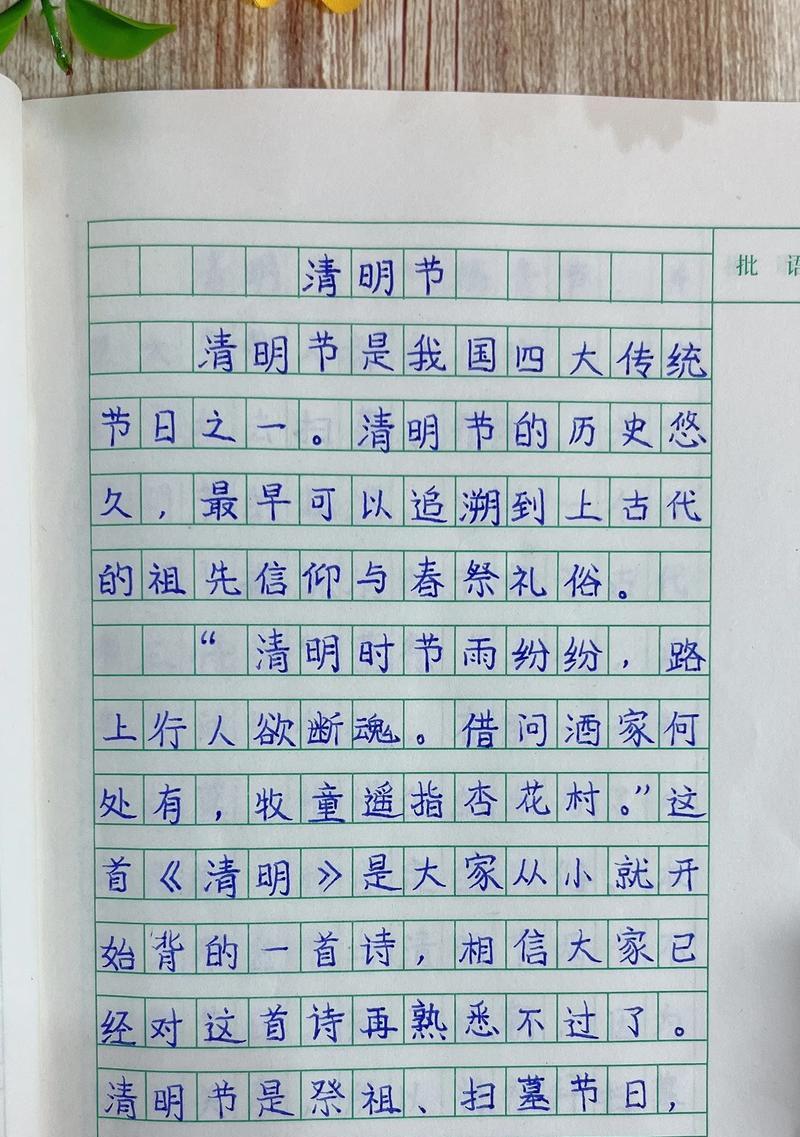 清明节
批语
清明节是我国四大传统
节日之一。清明节的历史悠
久，最早可以追溯到上古代
的祖先信仰与春祭礼俗。
“清明时节雨纷纷，路
上行人欲断魂。借问酒家何
处有，牧童遥指杏花村。”这
首《清明》是大家从小就开
始背的一首诗，相信大家已
经对这首诗再熟悉不过了。
清明节是祭祖、扫墓节日，